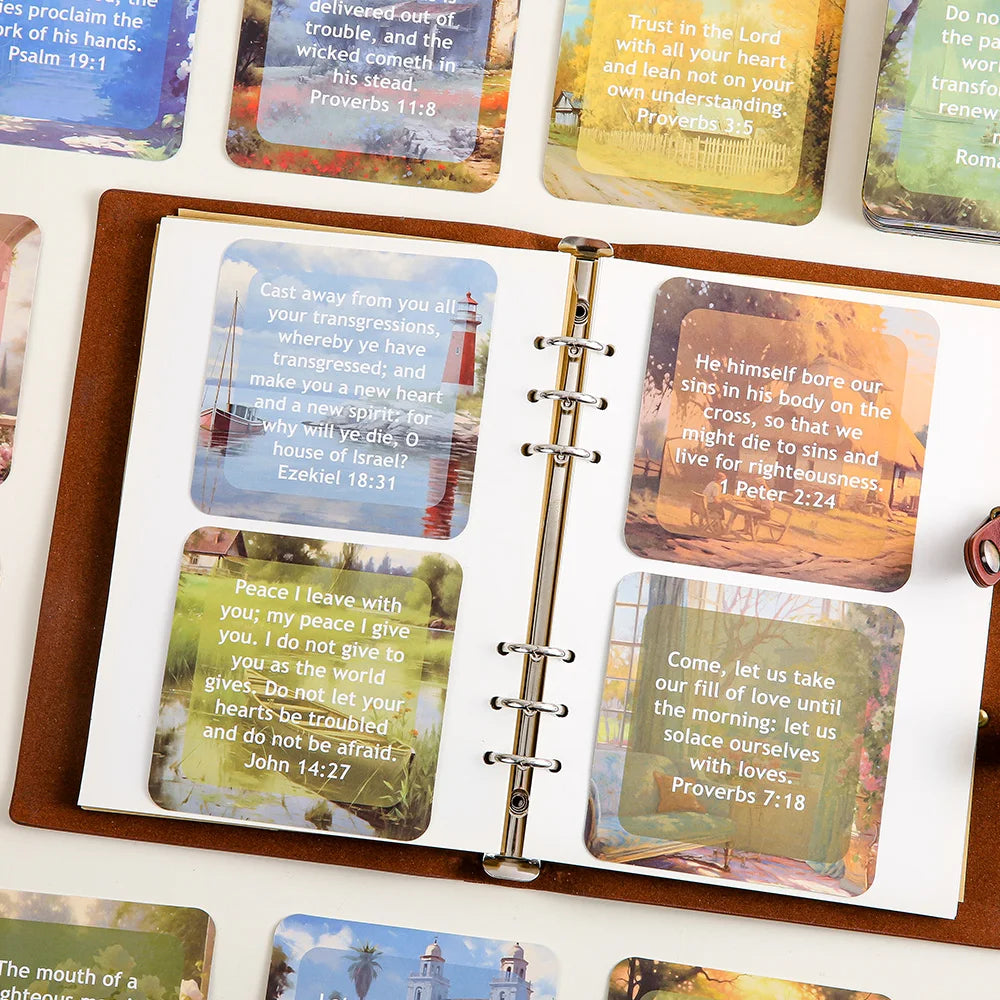 the
proclaim the
of his hands.
Psalm 19:1
delivered out of
trouble, and the
wicked cometh in
his stead.
Proverbs 11:8
Trust in the Lord
with all your heart
and lean not on your
own understanding.
Proverbs 3:5
Do
the
Cast away from you all
your transgressions,
whereby ye have
transgressed; and
make you a new heart
and a new spirit: for
why will ye die, O
house of Israel?
Ezekiel 18:31
Peace I leave with
you; my peace I give
you. I do not give to
you as the world
gives. Do not let your
hearts be troubled
and do not be afraid.
John 14:27
He himself bore our
sins in his body on the
cross, so that we
might die to sins and
live for righteousness.
1 Peter 2:24
Come, let us take
our fill of love until
the morning: let us
solace ourselves
with loves.
Proverbs 7:18
The mouth of a